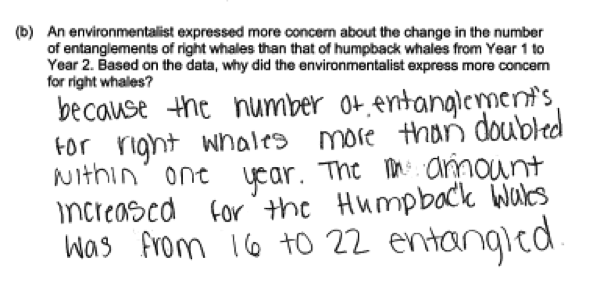 (b) An environmentalist expressed more concern about the change in the number
of entanglements of right whales than that of humpback whales from Year 1 to
Year 2. Based on the data, why did the environmentalist express more concern
for right whales?
because the number of entanglements
for right whales more than doubled
within one year. The amount
increased for the Humpback Wales
was from 16 to 22 entangled.